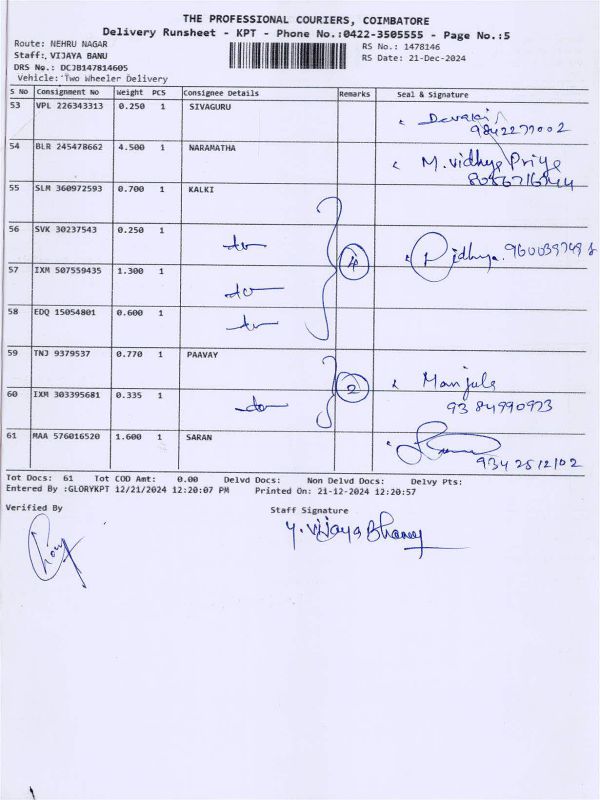 THE PROFESSIONAL COURIERS, COIMBATORE
Delivery Runsheet - KPT - Phone No.:0422-3505555 - Page No.:5
Route: NEHRU NAGAR RS No.: 1478146
Staff: VIJAYA BANU RS Date: 21-Dec-2024
DRS No.: DCJB147814605
Vehicle: Two Wheeler Delivery
S No Consignment No Weight PCS Consignee Details Remarks Seal & Signature
53 VPL 226343313 0.250 1 SIVAGURU Devaki
9842277002
54 BLR 245478662 4.500 1 NARAMATHA M. Vidhya Priya
55 SLM 360972593 0.700 1 KALKI
56 SVK 30237543 0.250 1 do 4
57 IXM 507559435 1.300 1 do
58 EDQ 15054801 0.600 1 do
59 TNJ 9379537 0.770 1 PAAVAY 2 Manjula
60 IXM 303395681 0.335 1 do 9384990973
61 MAA 576016520 1.600 1 SARAN
9342512102
Tot Docs: 61 Tot COD Amt: 0.00 Delvd Docs: Non Delvd Docs: Delvy Pts:
Entered By :GLORYKPT 12/21/2024 12:20:07 PM Printed On: 21-12-2024 12:20:57
Verified By Staff Signature
Y. Vijaya Bhanu